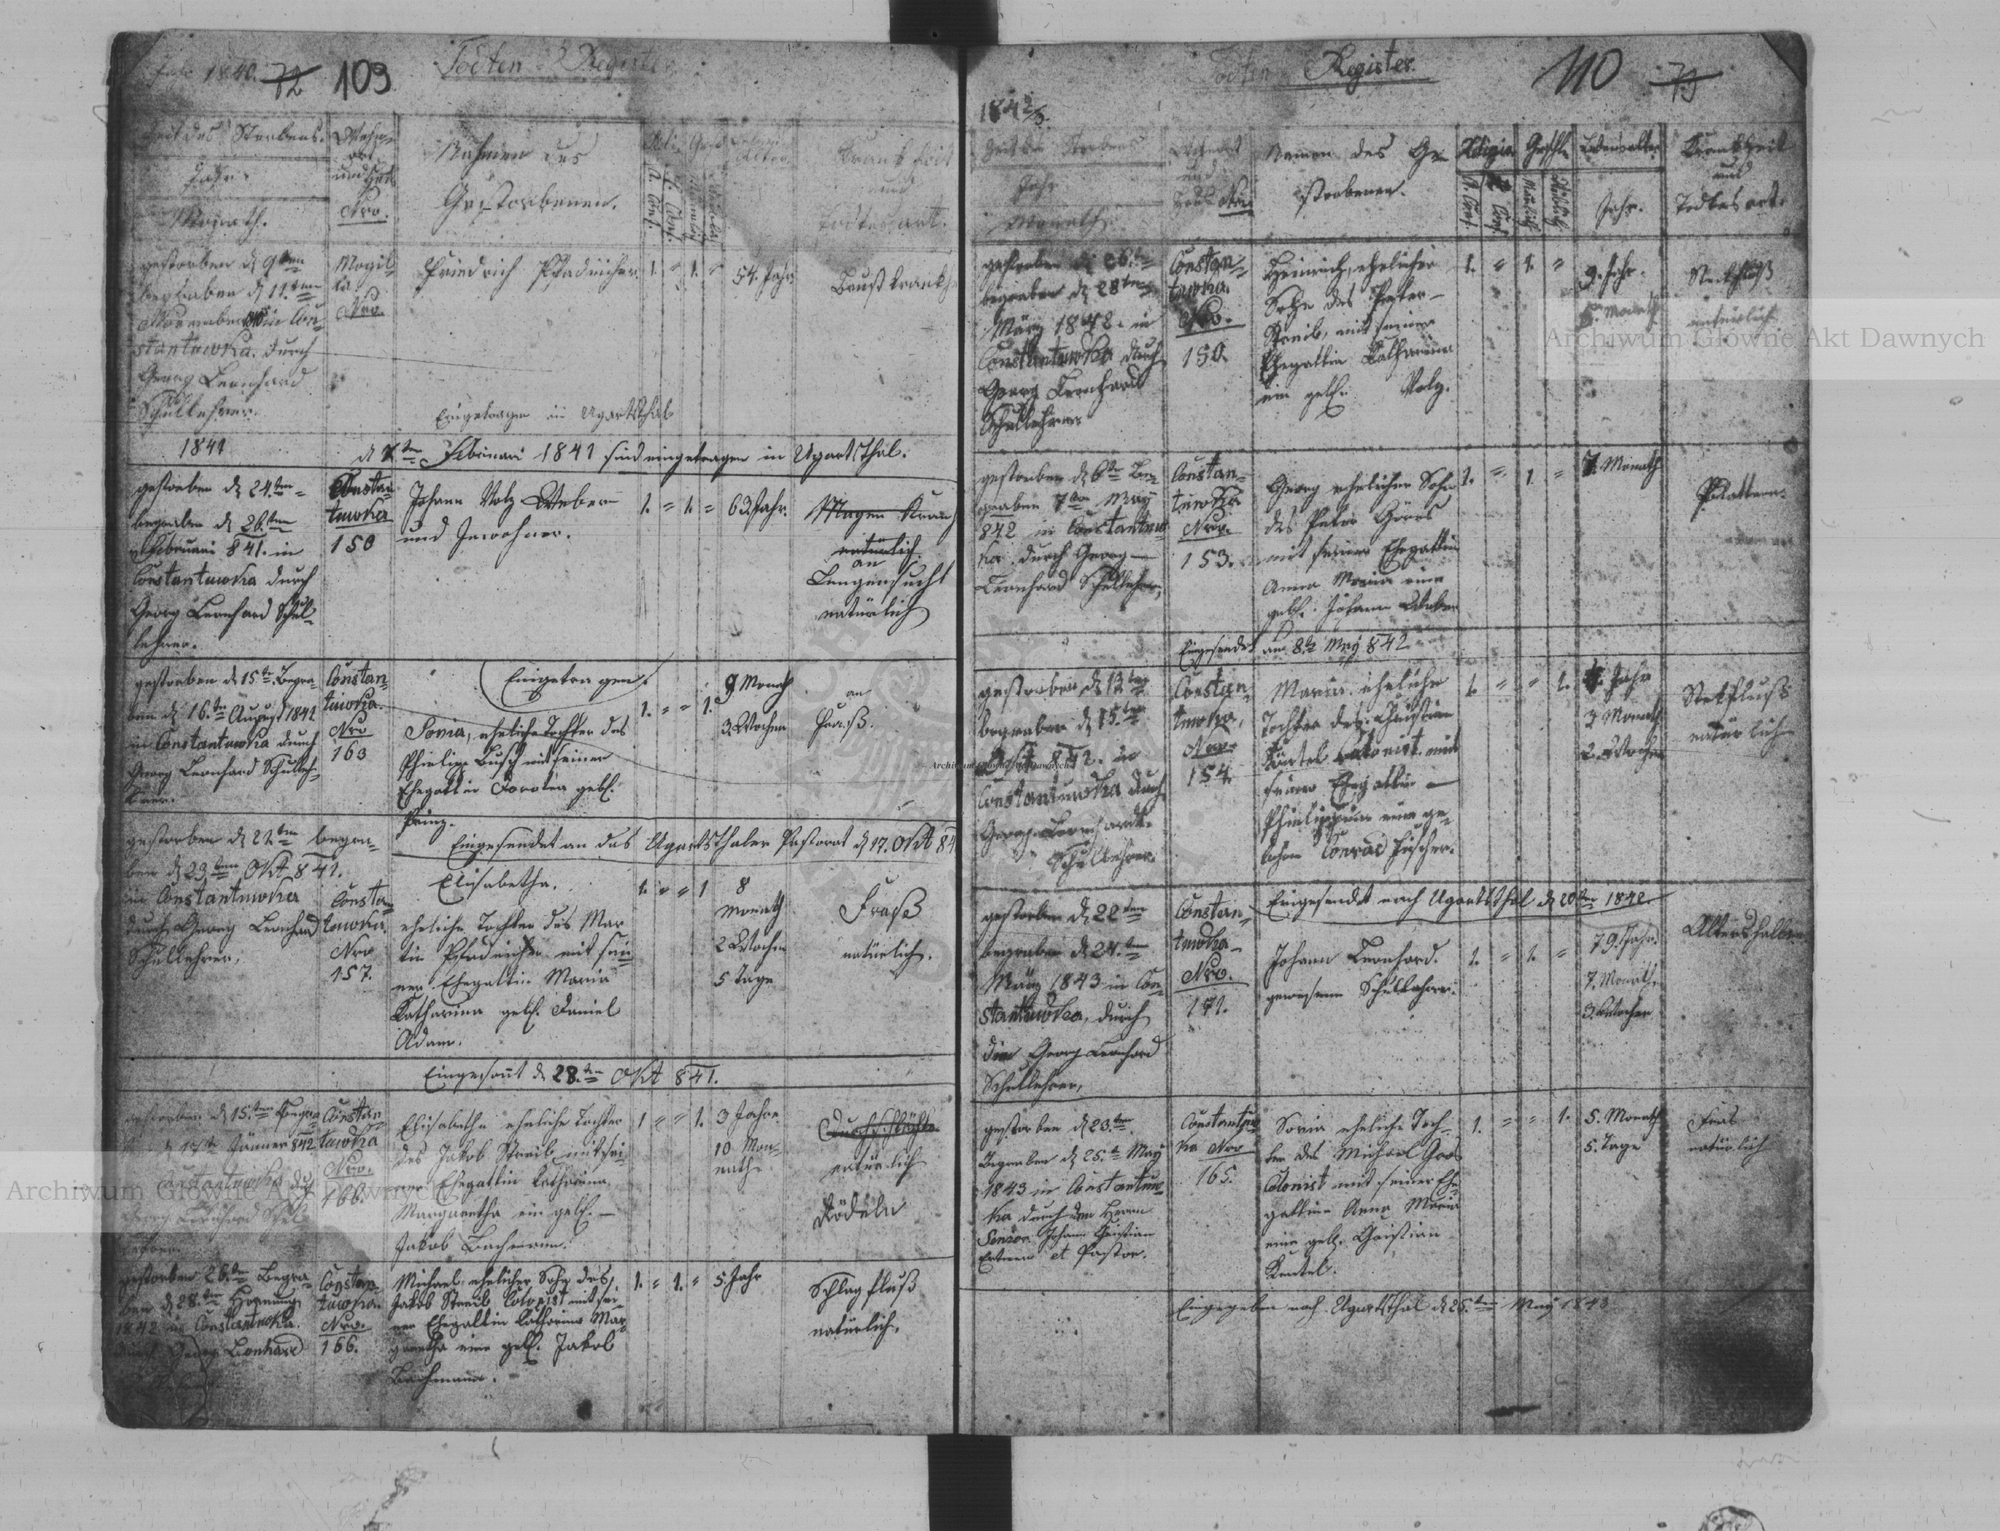 Jahr 1840. 72 109 Todten = Register
Zeit des Sterbens.
Jahr.
Monath.
Wohn-
ort
und Haus
Nro.
Nahmen des
Gestorbenen.
Religion
Geschl.
Lebens
Alter
Krankheit
und
Todtesart.
gestorben d 9ten
begraben d 11ten
November 840 in Con-
stantuwka. durch
Georg Leonhard
Schullehrer.
Mogil-
la
Nro.
Friedrich Pfadeicher.
1. " 1. "
54. Jahr
Brustkrankh
Eingetragen in Ugartsthal
1841
d ten Februari 1841 sind eingetragen in Ugartsthal.
gestorben d 24.ten
begraben d 26.ten
Februari 841. in
Constantuwka durch
Georg Leonhard Schul-
lehrer.
Constan-
tuwka
150
Johann Volz Weber
und Inwohner.
1. = 1. =
63. Jahr.
Magen Krank
natürlich
an
Lungensucht
natürlich
gestorben d 15te Begra-
ben d 16.ten August 1841
in Constantuwka durch
Georg Leonhard Schulleh-
rer.
Constan-
tuwka.
Nro
163
Eingetragen.
Sovia, eheliche Tochter des
Phielipp Busch mit seiner
Ehegattin Dorotea gebh.
Prinz.
1. " " 1.
9 Monath
3 Wochen
an
Fraß.
Eingesendet an das Ugartsthaler Pastorat d 17. Okt 84
gestorben d 22ten begra-
ben d 23ten Okt 841.
in Constantuwka
durch Georg Leonhard
Schullehrer.
Constan-
tuwka.
Nro
157.
Elisabetha.
eheliche Tochter des Mar-
tin Pfadeicher mit sei-
ner Ehegattin Maria
Katharina gebh. Daniel
Adam.
1. " " 1
8
Monath
2 Wochen
5 Tage
Fraß
natürlich.
Eingesant d 28.ten Okt 841.
gestorben d 15.ten Begra
d 17ten Jänner 842
Constantuwka du
Georg Leonhard Schul
lehrer.
Constan-
tuwka
Nro.
166.
Elisabetha eheliche Tochter
des Jakob Streib mit sei-
ner Ehegattin Katharina
Margaretha ein gebh. —
Jakob Bachmann.
1 " " 1.
3 Jahre
10 Mon-
nath
natürlich
Rödeln
gestorben 26.ten Begra-
ben d 28.ten Hornung
1842 in Constantuwka.
durch Georg Leonhard
Constan-
tuwka.
Nro.
166.
Michael ehelicher Sohn des
Jakob Streib Colonist mit sei-
ner Ehegattin Catharina Mar-
garetha eine gebh. Jakob
Bachmann.
1. " 1. "
5 Jahr
Schlagfluß
natürlich.
Todten = Register. 110 73
1842/3.
Zeit des Sterbens
Jahr
Monath
Wohnort
und
Haus Nro.
Namen des Ge-
storbenen.
Religion
Geschl.
Lebensalter
Jahr.
Krankheit
und
Todtesart.
gestorben d 26.ten
begraben d 28ten
März 1842. in
Constantuwka durch
Georg Leonhard
Schullehrer
Constan-
tuwka.
Nro.
150
Heinrich, ehelicher
Sohn des Peter
Streib, mit seiner
Ehegattin Katharina
ein gebh. Volz.
1. " 1. "
9. Jahr.
Monath
Steckfluß
natürlich
gestorben d 6te Be-
graben 7te May
842 in Constantuw-
ka. durch Georg —
Leonhard Schullehrer,
Constan-
tuwka
Nro.
153.
Georg ehelicher Sohn
des Peter
mit seiner Ehegattin
Anna Maria eine
gebh. Johann Weber
1. " 1. "
7. Monath
Platern.
Eingesendet am 8te May 842
gestorben d 13ten
begraben d 15ten
842. in
Constantuwka durch
Georg Leonhardt.
Schullehrer.
Constan-
tuwka,
Nro.
154.
Maria eheliche
Tochter des Christian
Kintel Colonist. mit
seiner Ehegattin —
Phielippina eine ge-
bohrn Conrad Fischer.
1. " " 1.
Jahr
3 Monath
2 Wochen
Stekfluß
natürlich
Eingesendet nach Ugartsthal d 20ten 1842.
gestorben d 22ten
begraben d 24.ten
März 1843 in Con-
stantuwka, durch
den Georg Leonhard
Schullehrer,
Constan-
tuwka
Nro.
171.
Johann Leonhard.
gewesener Schullehrer.
1. " 1. "
79. Jahr.
7. Monath,
3. Wochen
Altershalber
gestorben d 23.ten
Begraben d 25.te May
1843 in Constantuw-
ka durch den Herrn
Senior Johann Christian
et Pastor.
Constantuw-
ka Nro
165.
Sovia eheliche Toch-
ter des Michael Gros
Colonist mit seiner Ehe
gattin Anna Maria
eine gebh. Christian
Kintel.
1. " " 1.
5. Monath
5 Tage
Fras
natürlich
Eingegeben nach Ugartsthal d 25.ten May 1843
Archiwum Główne Akt Dawnych
Archiwum Główne Akt Dawnych
Archiwum Główne Akt Dawnych